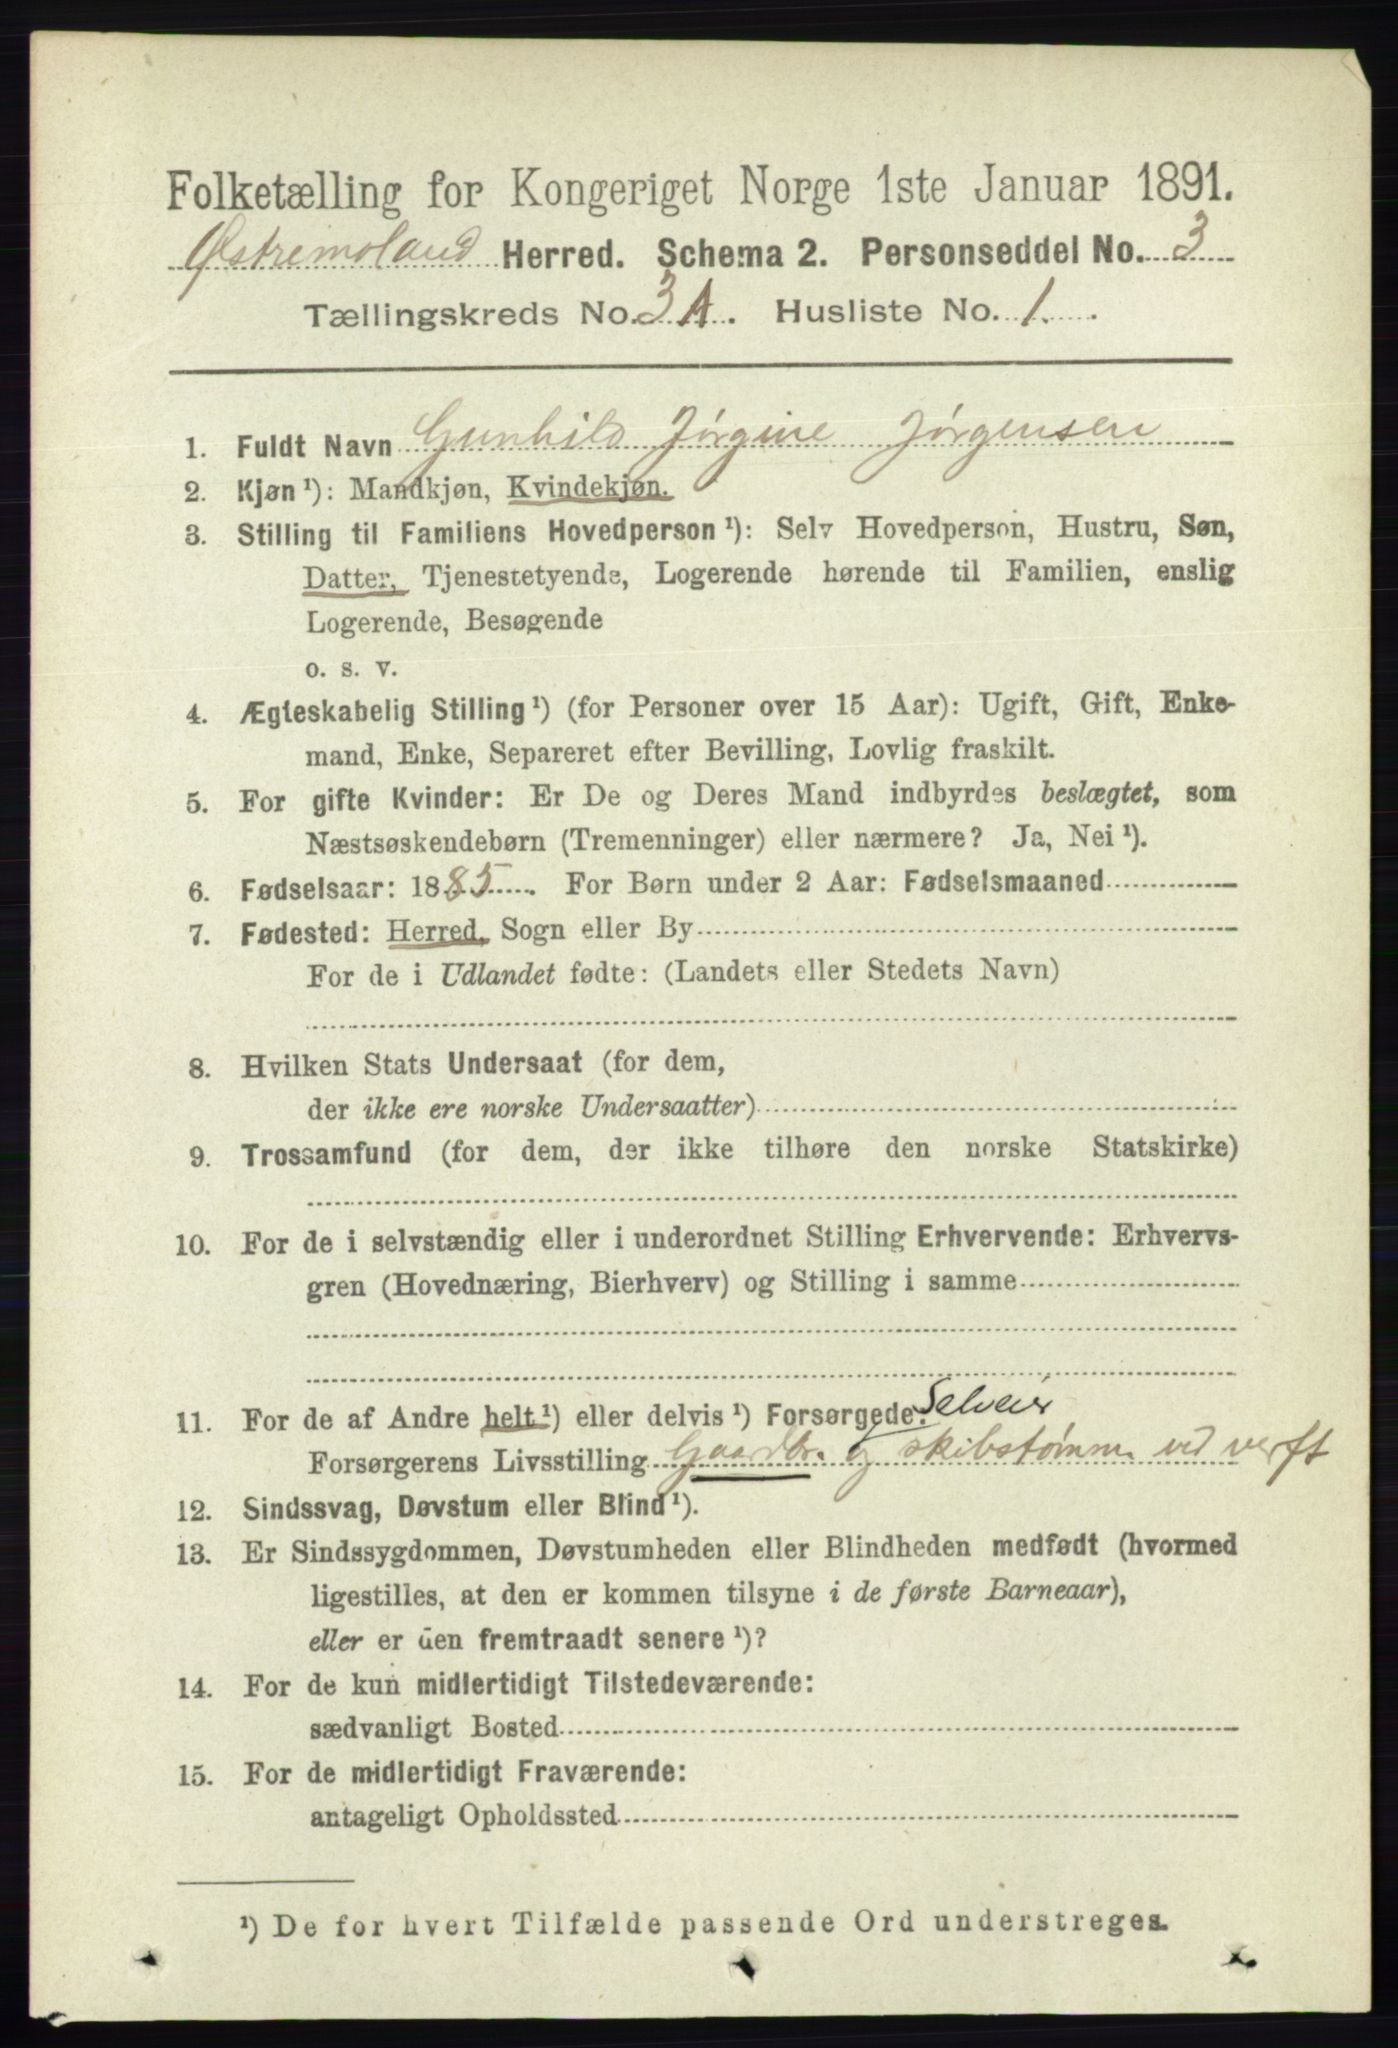 Folketælling for Kongeriget Norge 1ste Januar 1891.
Østremoland Herred. Schema 2. Personseddel No. 3
Tællingskreds No. 3A. Husliste No. 1.
1. Fuldt Navn Gunhild Jørgine Jørgensen
2. Kjøn ¹): Mandkjøn, Kvindekjøn.
3. Stilling til Familiens Hovedperson ¹): Selv Hovedperson, Hustru, Søn,
Datter, Tjenestetyende, Logerende hørende til Familien, enslig
Logerende, Besøgende
o. s. v.
4. Ægteskabelig Stilling ¹) (for Personer over 15 Aar): Ugift, Gift, Enke-
mand, Enke, Separeret efter Bevilling, Lovlig fraskilt.
5. For gifte Kvinder: Er De og Deres Mand indbyrdes beslægtet, som
Næstsøskendebørn (Tremenninger) eller nærmere? Ja, Nei ¹).
6. Fødselsaar: 1885. For Børn under 2 Aar: Fødselsmaaned
7. Fødested: Herred, Sogn eller By
For de i Udlandet fødte: (Landets eller Stedets Navn)
8. Hvilken Stats Undersaat (for dem,
der ikke ere norske Undersaatter)
9. Trossamfund (for dem, der ikke tilhøre den norske Statskirke)
10. For de i selvstændig eller i underordnet Stilling Erhvervende: Erhvervs-
gren (Hovednæring, Bierhverv) og Stilling i samme
11. For de af Andre helt ¹) eller delvis ¹) Forsørgede: Selveier
Forsørgerens Livsstilling Gaardbr. og skibstømm ved verft
12. Sindssvag, Døvstum eller Blind ¹).
13. Er Sindssygdommen, Døvstumheden eller Blindheden medfødt (hvormed
ligestilles, at den er kommen tilsyne i de første Barneaar),
eller er den fremtraadt senere ¹)?
14. For de kun midlertidigt Tilstedeværende:
sædvanligt Bosted
15. For de midlertidigt Fraværende:
antageligt Opholdssted
¹) De for hvert Tilfælde passende Ord understreges.